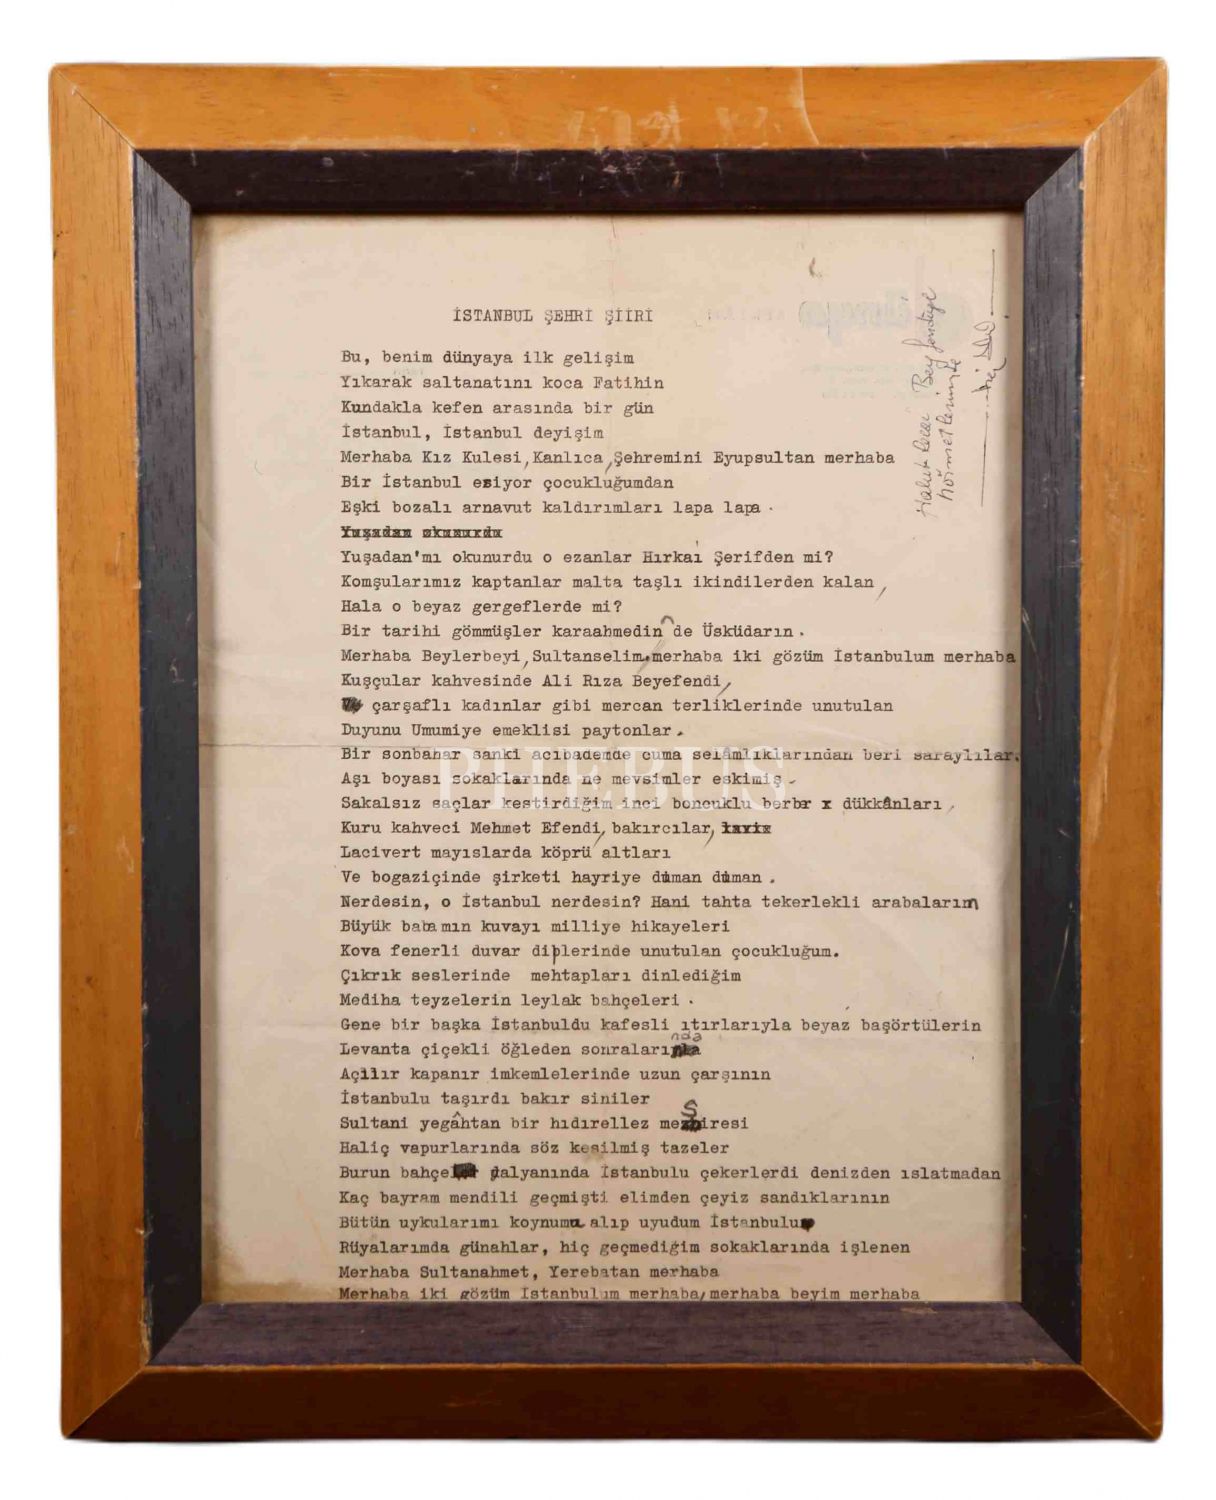 İSTANBUL ŞEHRİ ŞİİRİ
Bu, benim dünyaya ilk gelişim
Yıkarak saltanatını koca Fatihin
Kundakla kefen arasında bir gün
İstanbul, İstanbul deyişim
Merhaba Kız Kulesi, Kanlıca, Şehremini Eyupsultan merhaba
Bir İstanbul esiyor çocukluğumdan
Eşki bozalı arnavut kaldırımları lapa lapa .
Yuşadan okunurdu
Yuşadan'mı okunurdu o ezanlar Hırkai Şerifden mi?
Komşularımız kaptanlar malta taşlı ikindilerden kalan,
Hala o beyaz gergeflerde mi?
Bir tarihi gömmüşler karaahmedin de Üsküdarın.
Merhaba Beylerbeyi, Sultanselim, merhaba iki gözüm İstanbulum merhaba
Kuşçular kahvesinde Ali Rıza Beyefendi,
çarşaflı kadınlar gibi mercan terliklerinde unutulan
Duyunu Umumiye emeklisi paytonlar.
Bir sonbahar sanki acıbademde cuma selâmlıklarından beri saraylılar.
Aşı boyası sokaklarında ne mevsimler eskimiş.
Sakalsız saçlar kestirdiğim inci boncuklu berber x dükkânları,
Kuru kahveci Mehmet Efendi, bakırcılar,
Lacivert mayıslarda köprü altları
Ve bogaziçinde şirketi hayriye duman duman .
Nerdesin, o İstanbul nerdesin? Hani tahta tekerlekli arabalarım
Büyük babamın kuvayı milliye hikayeleri
Kova fenerli duvar diplerinde unutulan çocukluğum.
Çıkrık seslerinde mehtapları dinlediğim
Mediha teyzelerin leylak bahçeleri .
Gene bir başka İstanbuldu kafesli ıtırlarıyla beyaz başörtülerin
Levanta çiçekli öğleden sonralarında
Açılır kapanır imkemlelerinde uzun çarşının
İstanbulu taşırdı bakır siniler
Sultani yegâhtan bir hıdırellez meşiresi
Haliç vapurlarında söz kesilmiş tazeler
Burun bahçe dalyanında İstanbulu çekerlerdi denizden ıslatmadan
Kaç bayram mendili geçmişti elimden çeyiz sandıklarının
Bütün uykularımı koynuma alıp uyudum İstanbulu
Rüyalarımda günahlar, hiç geçmediğim sokaklarında işlenen
Merhaba Sultanahmet, Yerebatan merhaba
Merhaba iki gözüm İstanbulum merhaba, merhaba beyim merhaba
Haluk Beyfendiye
hörmetlerimle
PHEBUS